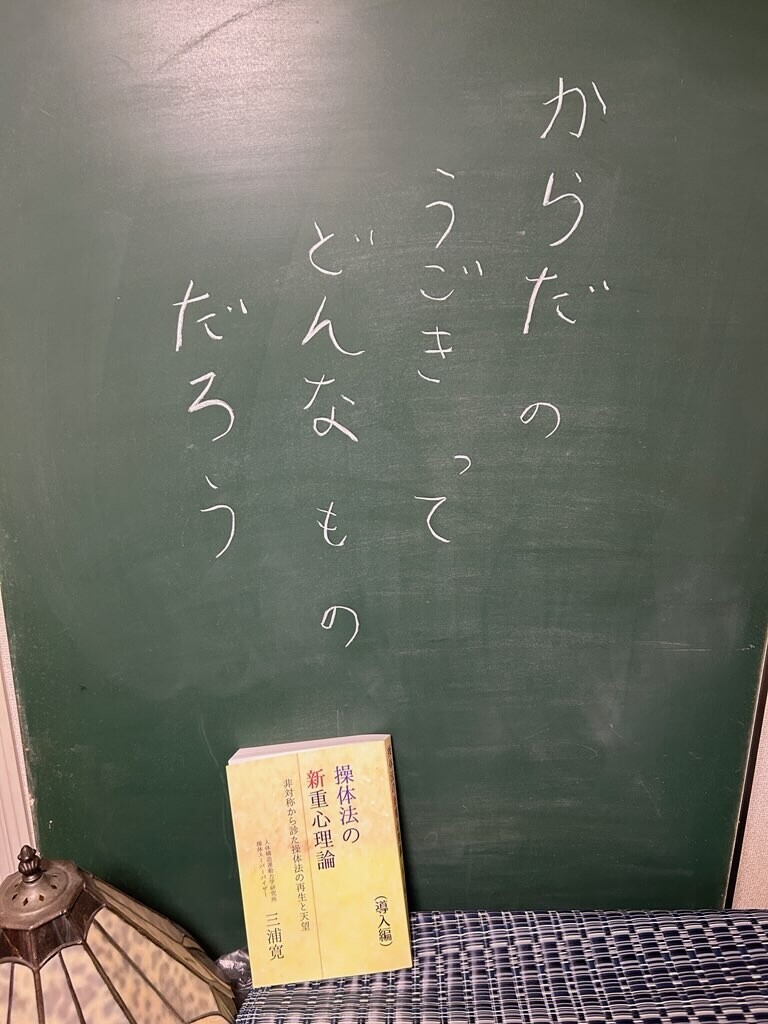 からだの
うごきって
どんなもの
だろう
操体法の
新重心理論
(導入編)
非対称から診た操体法の再生と天望
人体構造運動力学研究所
操体スーパーバイザー
三浦寛